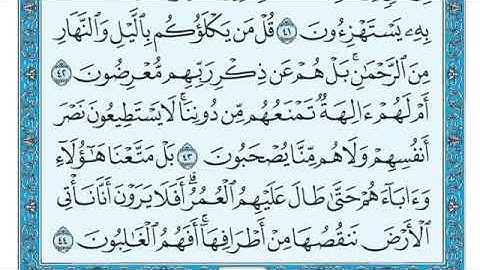 بِهِۦ يَسْتَهْزِءُونَ ٤١ قُلْ مَن يَكْلَؤُكُم بِٱلَّيْلِ وَٱلنَّهَارِ
مِنَ ٱلرَّحْمَٰنِۚ بَلْ هُمْ عَن ذِكْرِ رَبِّهِم مُّعْرِضُونَ ٤٢
أَمْ لَهُمْ ءَالِهَةٌ تَمْنَعُهُم مِّن دُونِنَاۚ لَا يَسْتَطِيعُونَ نَصْرَ
أَنفُسِهِمْ وَلَا هُم مِّنَّا يُصْحَبُونَ ٤٣ بَلْ مَتَّعْنَا هَٰٓؤُلَآءِ
وَءَابَآءَهُمْ حَتَّىٰ طَالَ عَلَيْهِمُ ٱلْعُمُرُۗ أَفَلَا يَرَوْنَ أَنَّا نَأْتِي
ٱلْأَرْضَ نَنقُصُهَا مِنْ أَطْرَافِهَآۚ أَفَهُمُ ٱلْغَٰلِبُونَ ٤٤